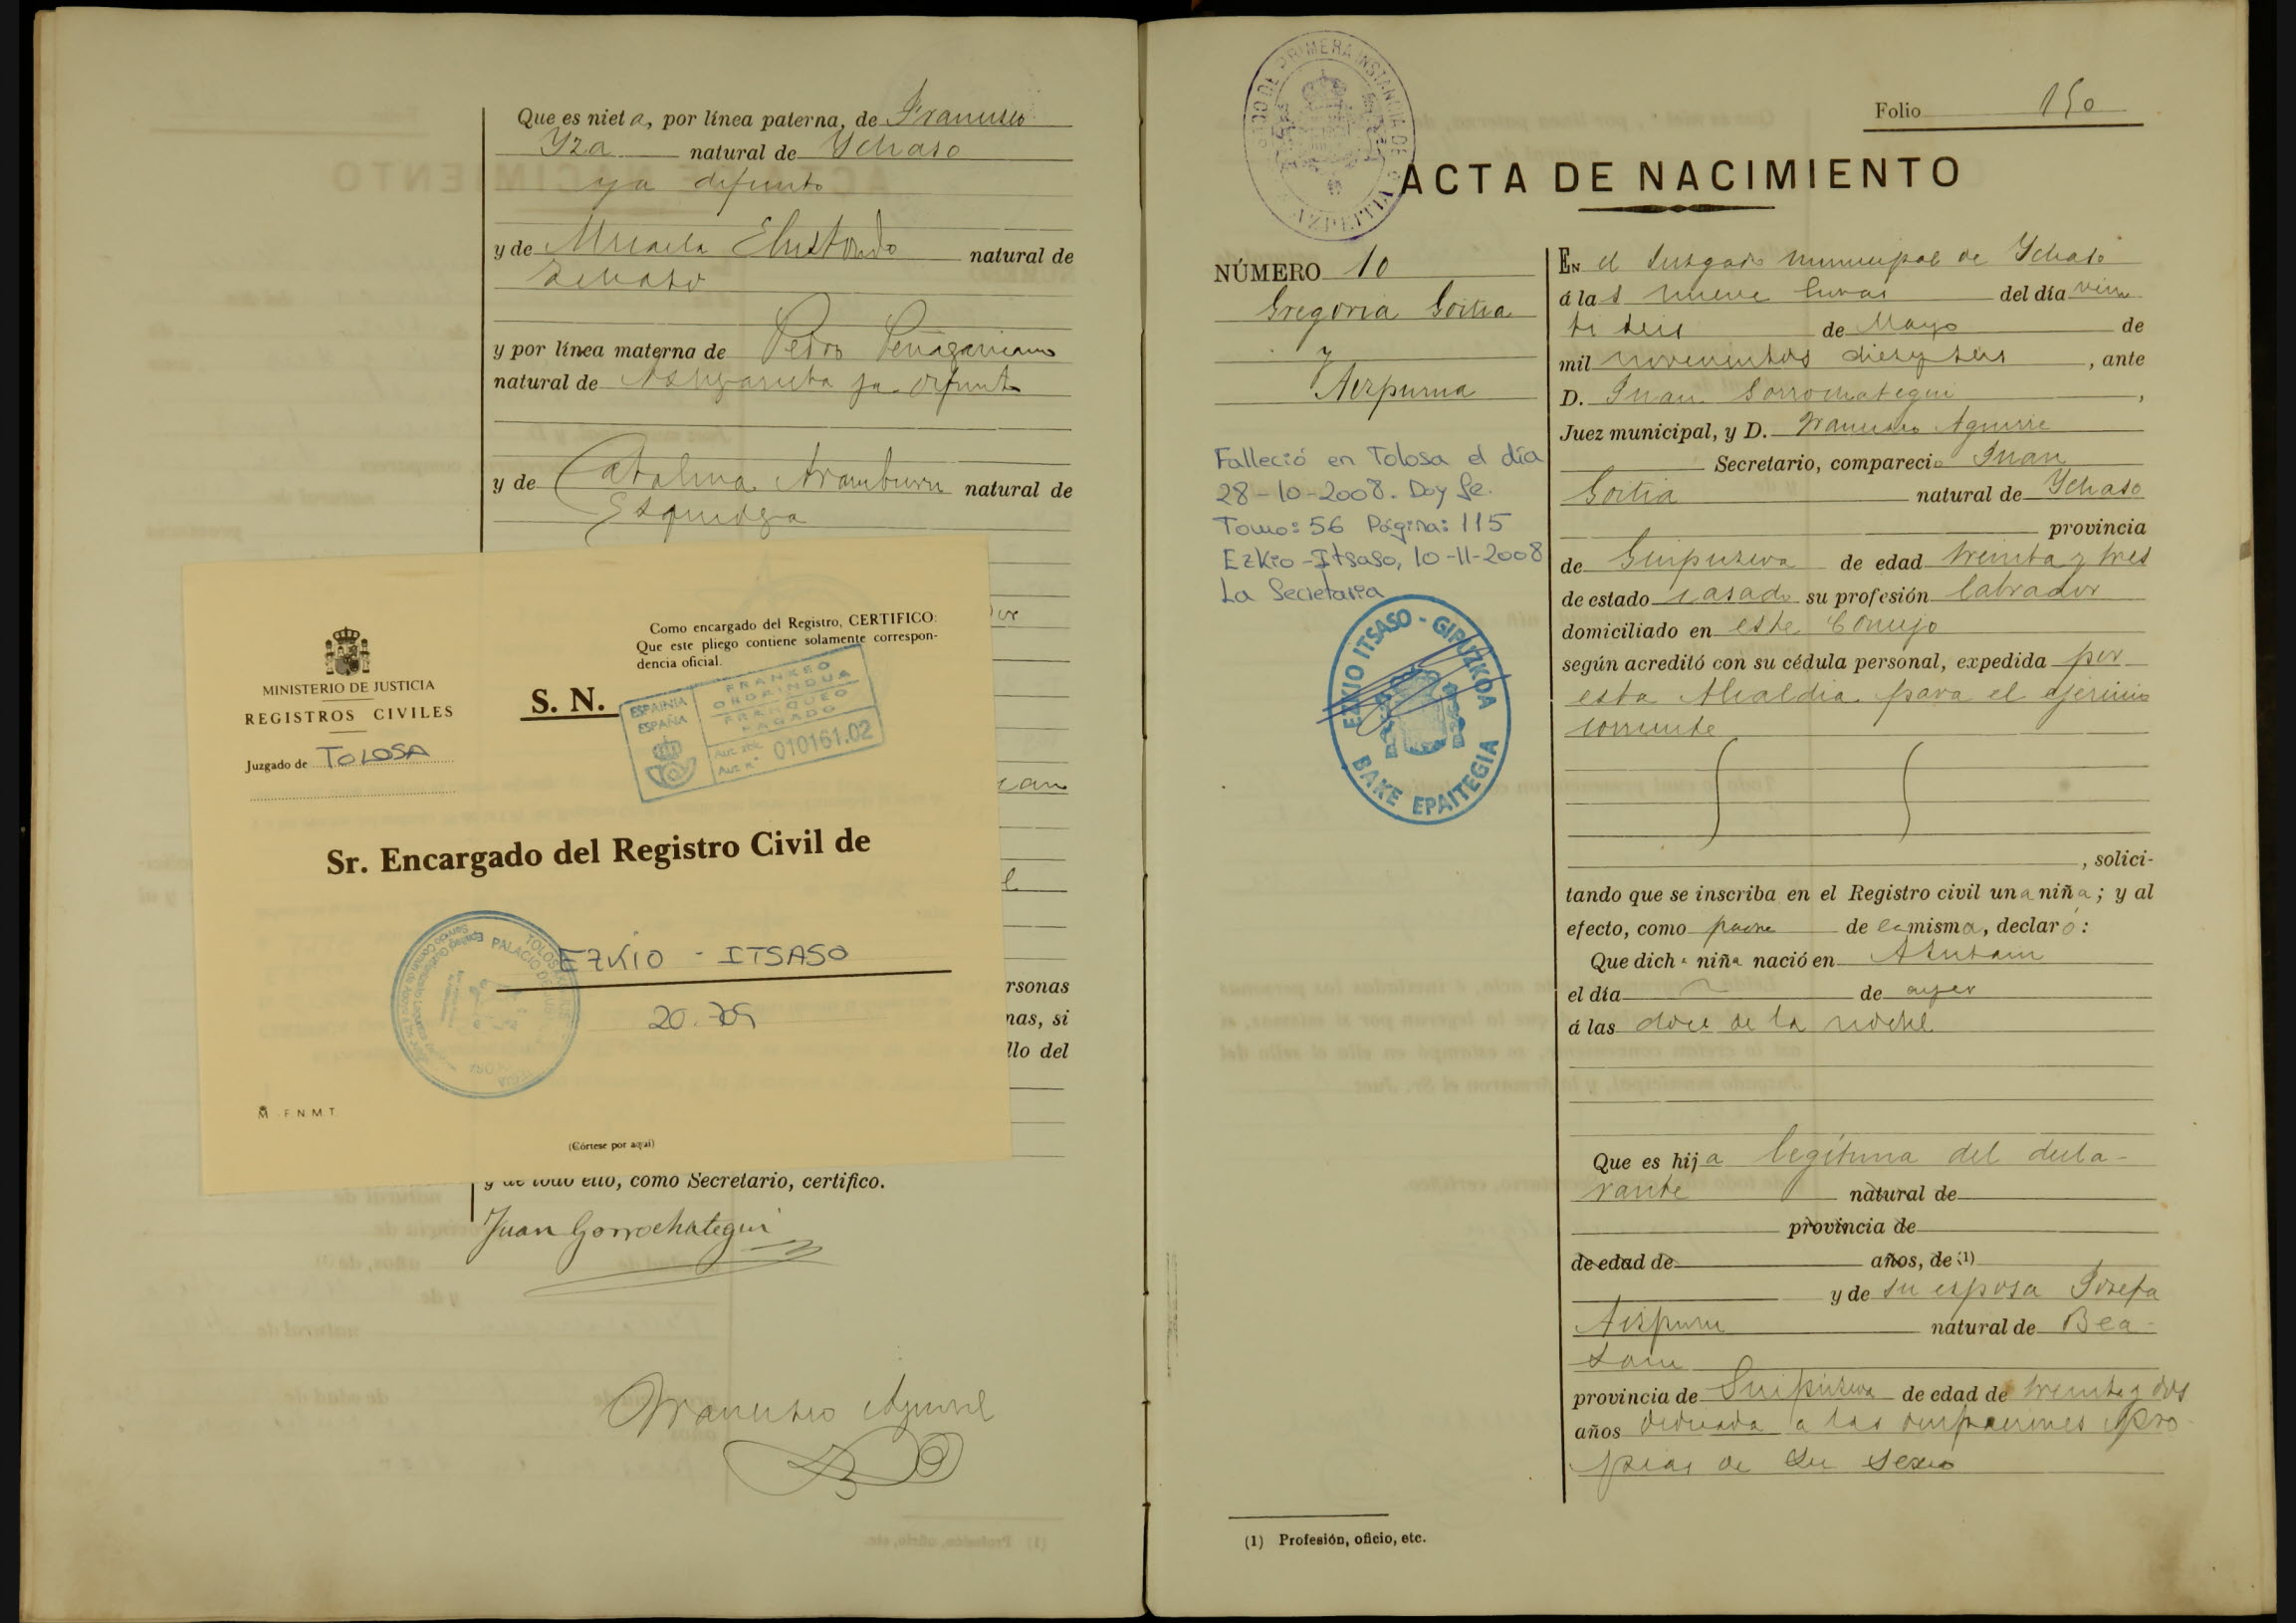 Que es nieta, por línea paterna, de Francisco
Yza natural de Ychaso
ya difunto
y de Micaela Elustondo natural de
Ychaso
y por línea materna de Pedro Peñagaricano
natural de Astigarreta ya difunto
y de Catalina Aramburu natural de
Esquioga
MINISTERIO DE JUSTICIA
REGISTROS CIVILES
Juzgado de TOLOSA
Como encargado del Registro, CERTIFICO:
Que este pliego contiene solamente correspon-
dencia oficial.
S. N.
ESPAINIA
ESPAÑA
FRANKEO
ORDAINDUA
FRANQUEO
PAGADO
Aut. zbk.
Aut. n.º 010161.02
Sr. Encargado del Registro Civil de
EZKIO - ITSASO
20.709
TOLOSA
PALACIO DE
M F.N.M.T.
(Córtese por aquí)
rsonas
nas, si
llo del
y de todo ello, como Secretario, certifico.
Juan Gorrochategui
Francisco Aguirre
JUZGADO DE PRIMERA INSTANCIA DE
AZPEITIA
Folio 150
ACTA DE NACIMIENTO
NÚMERO 10
Gregoria Goitia
y
Aizpurua
Falleció en Tolosa el día
28-10-2008. Doy fe.
Tomo: 56 Página: 115
Ezkio-Itsaso, 10-11-2008
La Secretaria
EZKIO ITSASO - GIPUZKOA
BAKE EPAITEGIA
En el Juzgado municipal de Ychaso
á las nueve horas del día vein
ti seis de Mayo de
mil novecientos diez y seis, ante
D. Juan Gorrochategui,
Juez municipal, y D. Francisco Aguirre
Secretario, compareció Juan
Goitia natural de Ychaso
provincia
de Guipuzcoa de edad treinta y tres
de estado casado su profesión labrador
domiciliado en este Concejo
según acreditó con su cédula personal, expedida por
esta Alcaldia para el ejercicio
corriente
, solici-
tando que se inscriba en el Registro civil una niña; y al
efecto, como padre de la misma, declaró:
Que dicha niña nació en
el día de ayer
á las doce de la noche
Que es hija legítima del decla-
rante natural de
provincia de
de edad de años, de (1)
y de su esposa Josefa
Aizpuru natural de Bea-
sain
provincia de Guipúzcoa de edad de treinta y dos
años dedicada a las ocupaciones pro
pias de su sexo
(1) Profesión, oficio, etc.